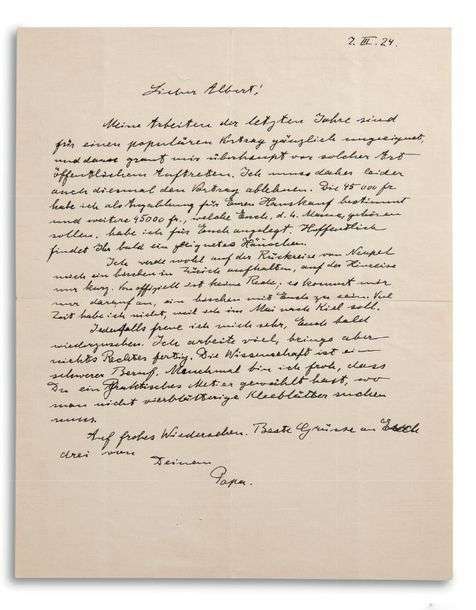 7. III. 24.
Lieber Albert!
Meine Arbeiten der letzten Jahre sind
für einen populären Vortrag gänzlich ungeeignet,
und dann graut mir überhaupt vor solcher Art
öffentlichem Auftreten. Ich muss daher leider
auch diesmal den Vortrag ablehnen. Die 45 000 fr
habe ich als Anzahlung für Euren Hauskauf bestimmt
und weitere 45000 fr., welche Euch, d. h. Mama, gehören
sollen, habe ich für Euch angelegt. Hoffentlich
findet Ihr bald ein geeignetes Häuschen.
Ich werde wohl auf der Rückreise von Neapel
noch ein bischen in Zürich aufhalten, auf der Hinreise
nur kurz. Von offiziell ist keine Rede, es kommt mir
nur darauf an, ein bischen mit Euch zu sein. Viel
Zeit habe ich nicht, weil ich im Mai nach Kiel soll.
Jedenfalls freue ich mich sehr, Euch bald
wiederzusehen. Ich arbeite viel, bringe aber
nichts Rechtes fertig. Die Wissenschaft ist ein
schwerer Beruf. Manchmal bin ich froh, dass
Du ein praktisches Metier gewählt hast, wo
man nicht vierblätterige Kleeblätter suchen
muss.
Auf frohes Wiedersehen. Beste Grüsse an Euch
drei von
Deinem
Papa.